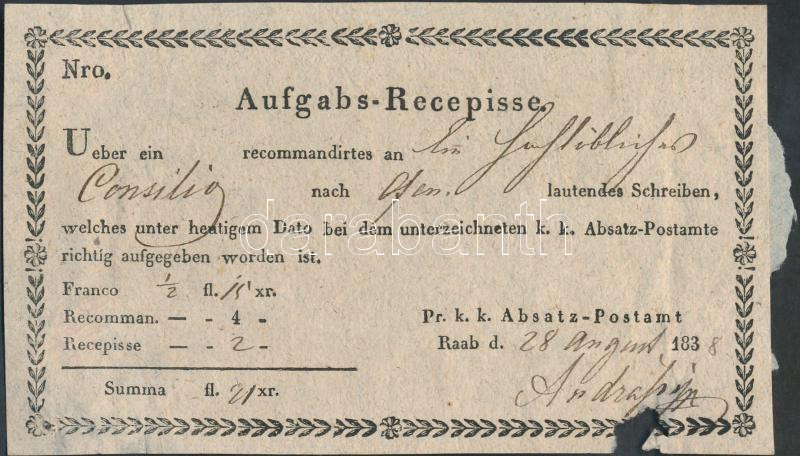 Nro.
Aufgabs-Recepisse.
Ueber ein recommandirtes an Ein Hochlöbliches
Consilio nach Ofen. lautendes Schreiben,
welches unter heutigem Dato bei dem unterzeichneten k. k. Absatz-Postamte
richtig aufgegeben worden ist.
Franco ½ fl. 15 xr.
Recomman. — - 4 -
Recepisse — - 2 -
Summa fl. 21 xr.
Pr. k. k. Absatz-Postamt
Raab d. 28 August 1838
darabanth